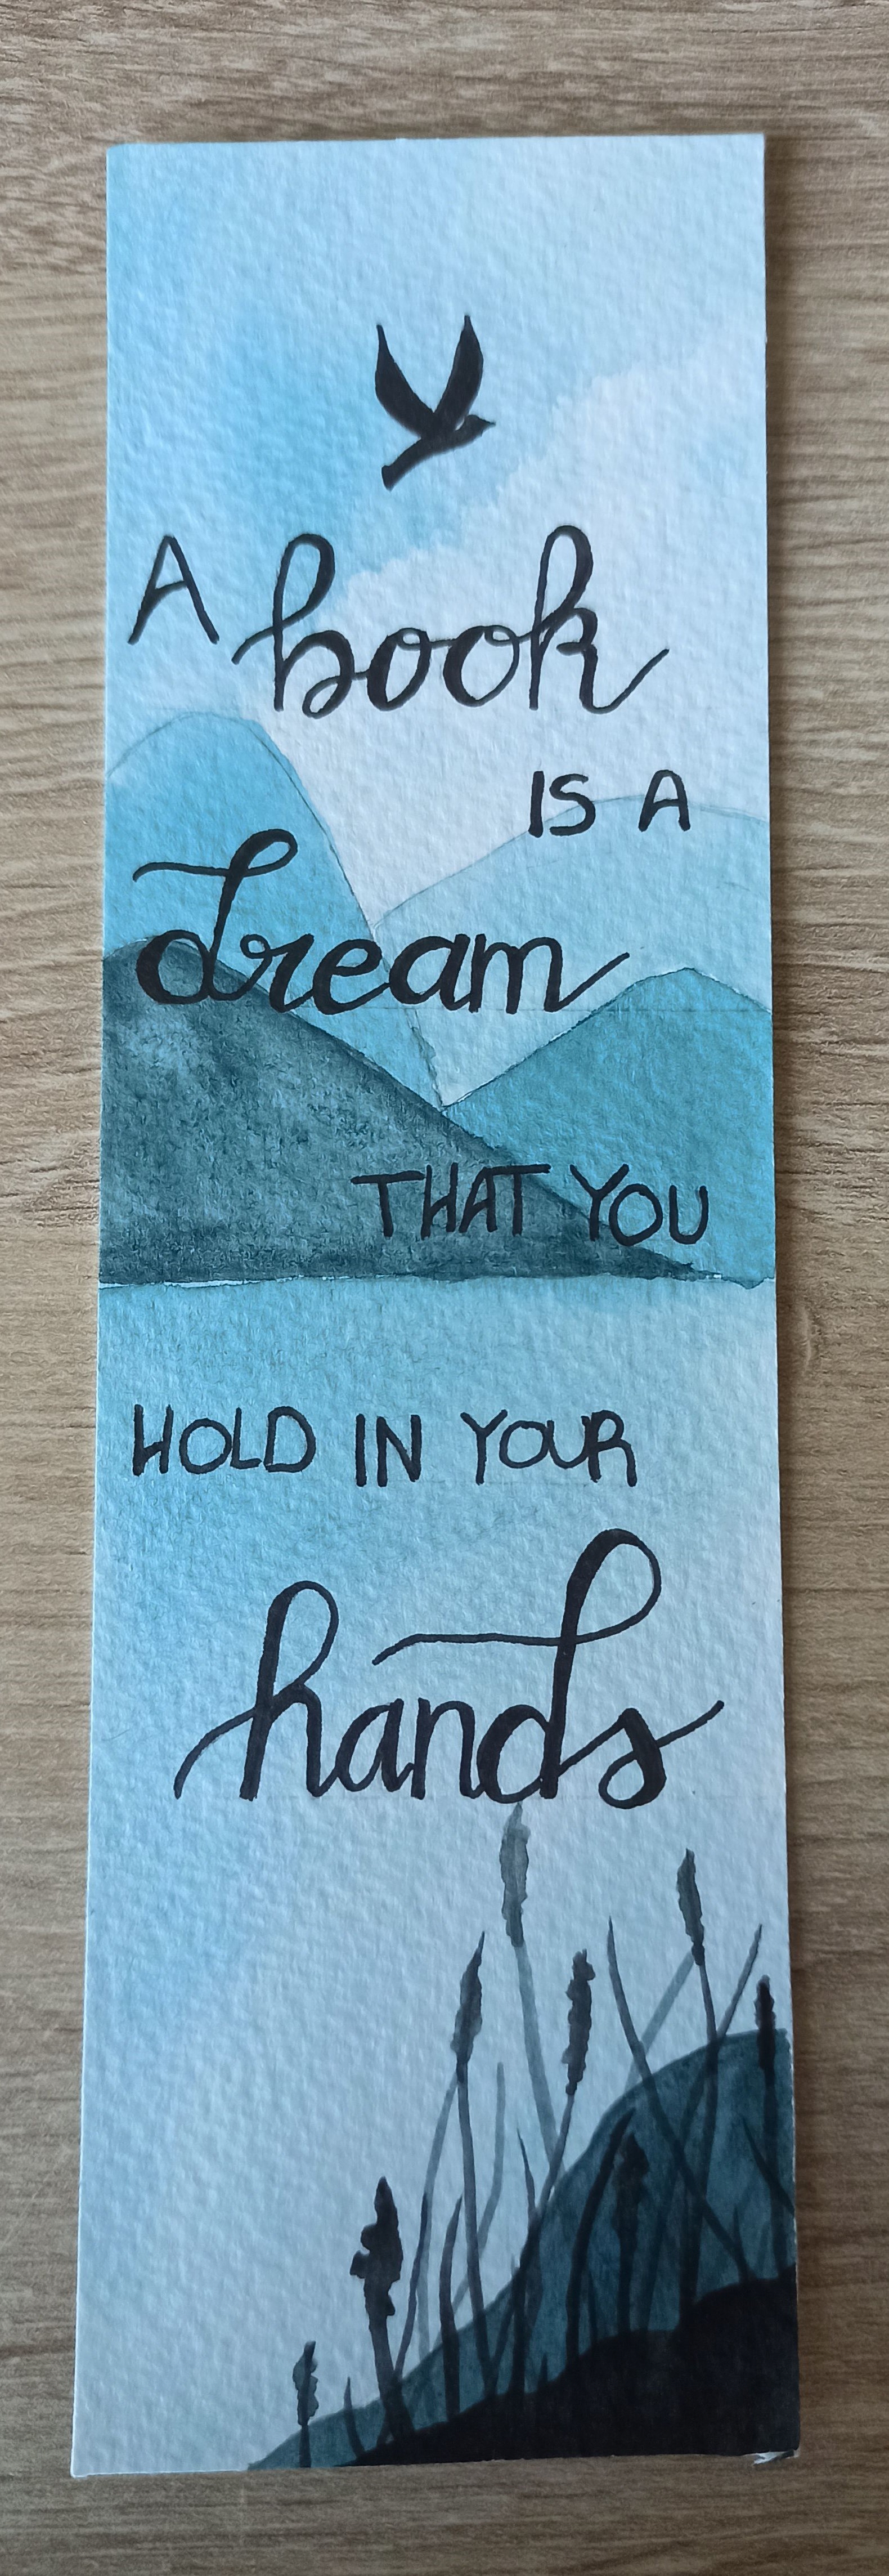 A book
IS A
dream
THAT YOU
HOLD IN YOUR
hands